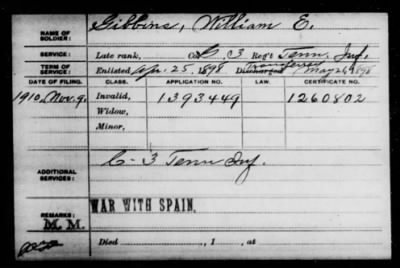 NAME OF SOLDIER: Gibbins, William E.
SERVICE: Late rank, Co. G, 3 Reg't Tenn. Inf.
TERM OF SERVICE: Enlisted Apr. 25, 1898 Discharged Transferred May 26, 1898
DATE OF FILING. CLASS. APPLICATION NO. LAW. CERTIFICATE NO.
1910, Nov. 9. Invalid, 1393449 1260802
Widow,
Minor,
ADDITIONAL SERVICES: C-3 Tenn Inf.
REMARKS: WAR WITH SPAIN.
M. M.
Died , 1 , at